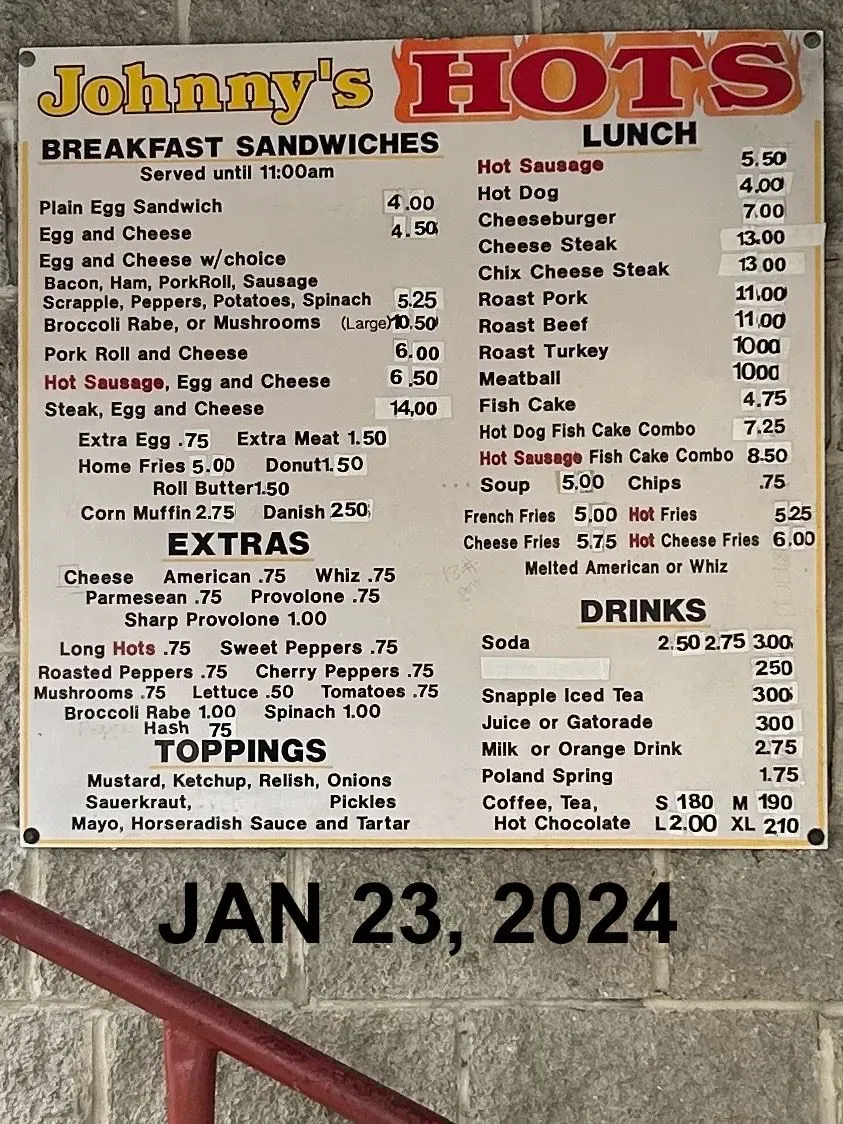 Johnny's HOTS
BREAKFAST SANDWICHES
Served until 11:00am
Plain Egg Sandwich 4.00
Egg and Cheese 4.50
Egg and Cheese w/choice
Bacon, Ham, PorkRoll, Sausage
Scrapple, Peppers, Potatoes, Spinach 5.25
Broccoli Rabe, or Mushrooms (Large) 10.50
Pork Roll and Cheese 6.00
Hot Sausage, Egg and Cheese 6.50
Steak, Egg and Cheese 14,00
Extra Egg .75 Extra Meat 1.50
Home Fries 5.00 Donut 1.50
Roll Butter 1.50
Corn Muffin 2.75 Danish 250
EXTRAS
Cheese American .75 Whiz .75
Parmesean .75 Provolone .75
Sharp Provolone 1.00
Long Hots .75 Sweet Peppers .75
Roasted Peppers .75 Cherry Peppers .75
Mushrooms .75 Lettuce .50 Tomatoes .75
Broccoli Rabe 1.00 Spinach 1.00
Hash 75
TOPPINGS
Mustard, Ketchup, Relish, Onions
Sauerkraut, Pickles
Mayo, Horseradish Sauce and Tartar
LUNCH
Hot Sausage 5.50
Hot Dog 4.00
Cheeseburger 7.00
Cheese Steak 13.00
Chix Cheese Steak 13 00
Roast Pork 11.00
Roast Beef 11.00
Roast Turkey 1000
Meatball 1000
Fish Cake 4.75
Hot Dog Fish Cake Combo 7.25
Hot Sausage Fish Cake Combo 8.50
Soup 5.00 Chips .75
French Fries 5.00 Hot Fries 525
Cheese Fries 5.75 Hot Cheese Fries 6.00
Melted American or Whiz
DRINKS
Soda 2.50 2.75 3.00
250
Snapple Iced Tea 300
Juice or Gatorade 300
Milk or Orange Drink 2.75
Poland Spring 1.75
Coffee, Tea, S 180 M 190
Hot Chocolate L 2.00 XL 210
JAN 23, 2024